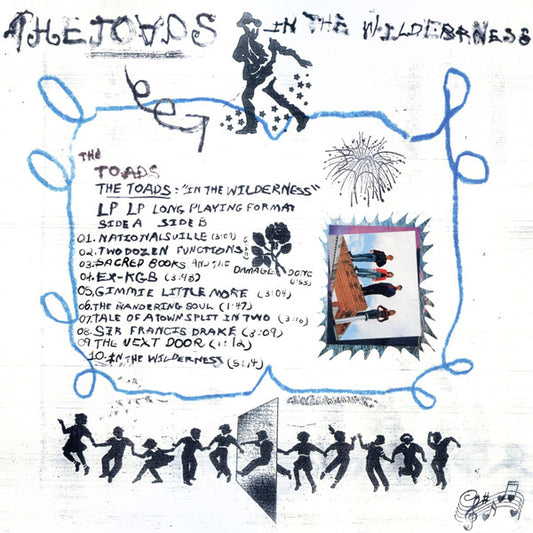 THE TOADS IN THE WILDERNESS
THE
TOADS
THE TOADS: "IN THE WILDERNESS"
LP LP LONG PLAYING FORMAT
SIDE A SIDE B
01. NATIONALSVILLE (3:09)
02. TWO DOZEN FUNCTIONS
03. SACRED BOOKS AND THE DAMAGE DONE
04. EX-KGB (3:48)
05. GIMMIE LITTLE MORE (3:04)
06. THE WANDERING SOUL (1:47)
07. TALE OF A TOWN SPLIT IN TWO (3:16)
08. SIR FRANCIS DRAKE (3:09)
09. THE NEXT DOOR (1:12)
10. IN THE WILDERNESS (5:14)